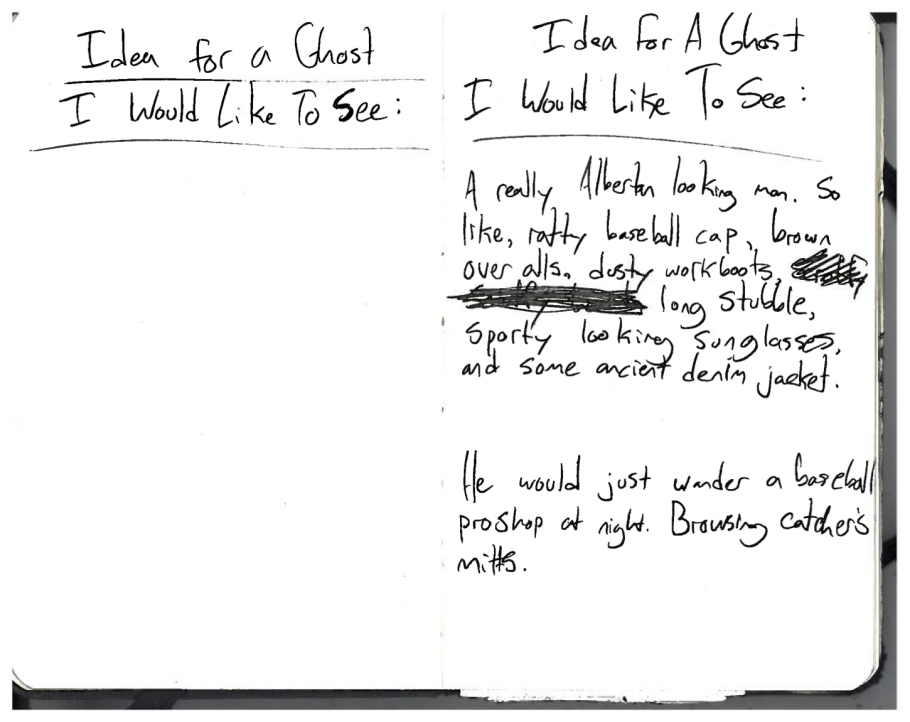 Idea for a Ghost
I Would Like To See:
Idea For A Ghost
I Would Like To See:
A really Albertan looking man. So
like, ratty baseball cap, brown
over alls, dusty workboots,
long stubble,
sporty looking sunglasses,
and some ancient denim jacket.
He would just wander a baseball
proshop at night. Browsing catcher's
mitts.